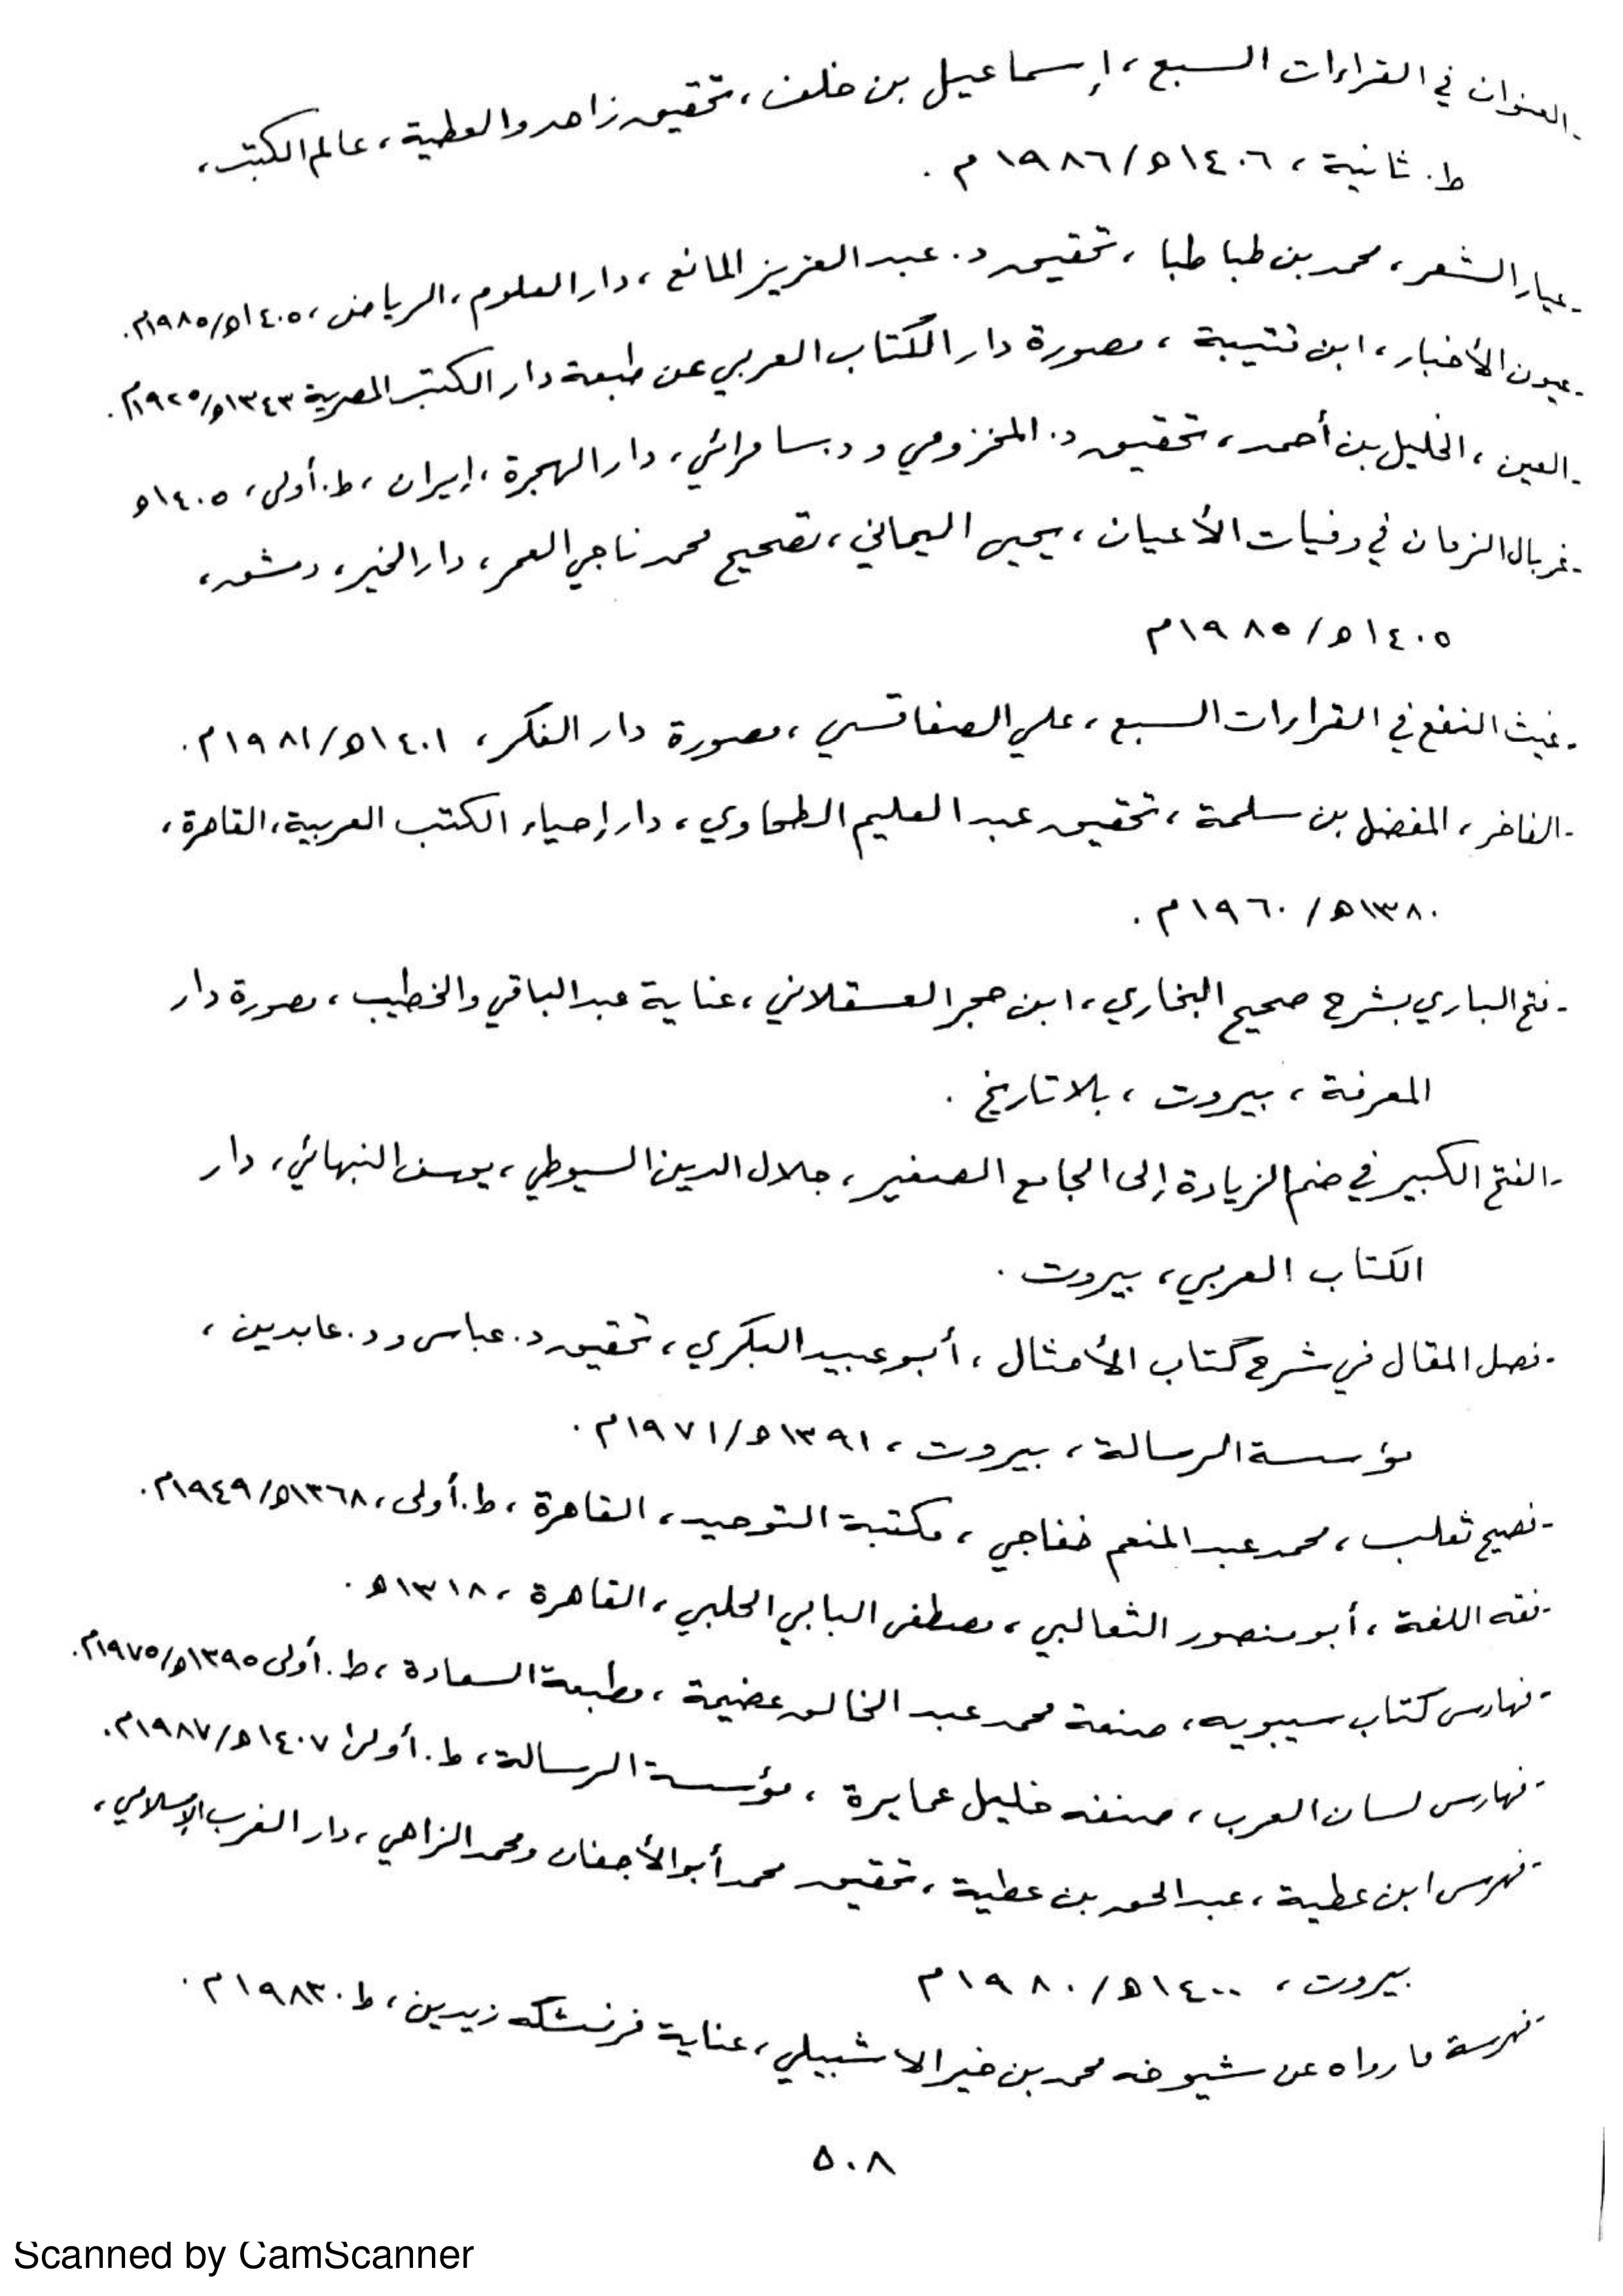 - العنوان في القراءات السبع، إسماعيل بن خلف، تحقيق زاهد والعطية، عالم الكتب،
ط. ثانية، ١٤٠٦ه/١٩٨٦م.
- عيار الشعر، محمد بن طباطبا، تحقيق د. عبد العزيز المانع، دار العلوم، الرياض، ١٤٠٥ه/١٩٨٥م.
- عيون الأخبار، ابن قتيبة، مصورة دار الكتاب العربي عن طبعة دار الكتب المصرية ١٣٤٣ه/١٩٢٥م.
- العين، الخليل بن أحمد، تحقيق د. المخزومي و د. سامرائي، دار الهجرة، إيران، ط. أولى، ١٤٠٥ه
- غربال الزمان في وفيات الأعيان، يحيى اليماني، تصحيح محمد ناجي العمر، دار الخير، دمشق،
١٤٠٥ه/١٩٨٥م
- غيث النفع في القراءات السبع، علي الصفاقسي، مصورة دار الفكر، ١٤٠١ه/١٩٨١م.
- الفاخر، المفضل بن سلمة، تحقيق عبد العليم الطحاوي، دار إحياء الكتب العربية، القاهرة،
١٣٨٠ه/١٩٦٠م.
- فتح الباري بشرح صحيح البخاري، ابن حجر العسقلاني، عناية عبد الباقي والخطيب، مصورة دار
المعرفة، بيروت، بلا تاريخ.
- الفتح الكبير في ضم الزيادة إلى الجامع الصغير، جلال الدين السيوطي، يوسف النبهاني، دار
الكتاب العربي، بيروت.
- فصل المقال في شرح كتاب الأمثال، أبو عبيد البكري، تحقيق د. عباس و د. عابدين،
مؤسسة الرسالة، بيروت، ١٣٩١ه/١٩٧١م.
- فصيح ثعلب، محمد عبد المنعم خفاجي، مكتبة التوحيد، القاهرة، ط. أولى، ١٣٦٨ه/١٩٤٩م.
- فقه اللغة، أبو منصور الثعالبي، مصطفى البابي الحلبي، القاهرة، ١٣١٨ه.
- فهارس كتاب سيبويه، صنعة محمد عبد الخالق عضيمة، مطبعة السعادة، ط. أولى ١٣٩٥ه/١٩٧٥م.
- فهارس لسان العرب، صنفه خليل عمايرة، مؤسسة الرسالة، ط. أولى ١٤٠٧ه/١٩٨٧م.
- فهرس ابن عطية، عبد الحق بن عطية، تحقيق محمد أبو الأجفان ومحمد الزاهي، دار الغرب الإسلامي،
بيروت، ١٤٠٠ه/١٩٨٠م
- فهرسة ما رواه عن شيوخه محمد بن خير الاشبيلي، عناية فرنشكه زيدين، ط. ١٩٨٣م.
٥٠٨
Scanned by CamScanner